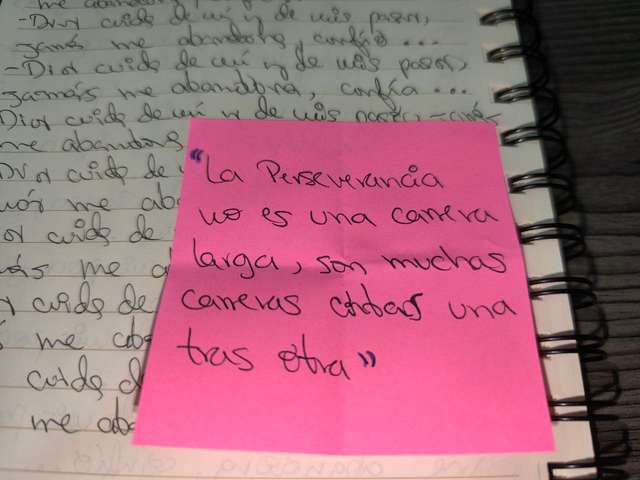 me abandona
-Dios cuida de mí y de mis pasos,
jamás me abandona, confía ...
-Dios cuida de mí y de mis pasos,
jamás me abandona, confía ...
Dios cuida de mí y de mis pasos, -jamás-
me abandona
cuida de
me abo
cuida de
más me a
cuida de
me abo
cuida d
me abo
"La Perseverancia
no es una carrera
larga, son muchas
carreras cortas una
tras otra"